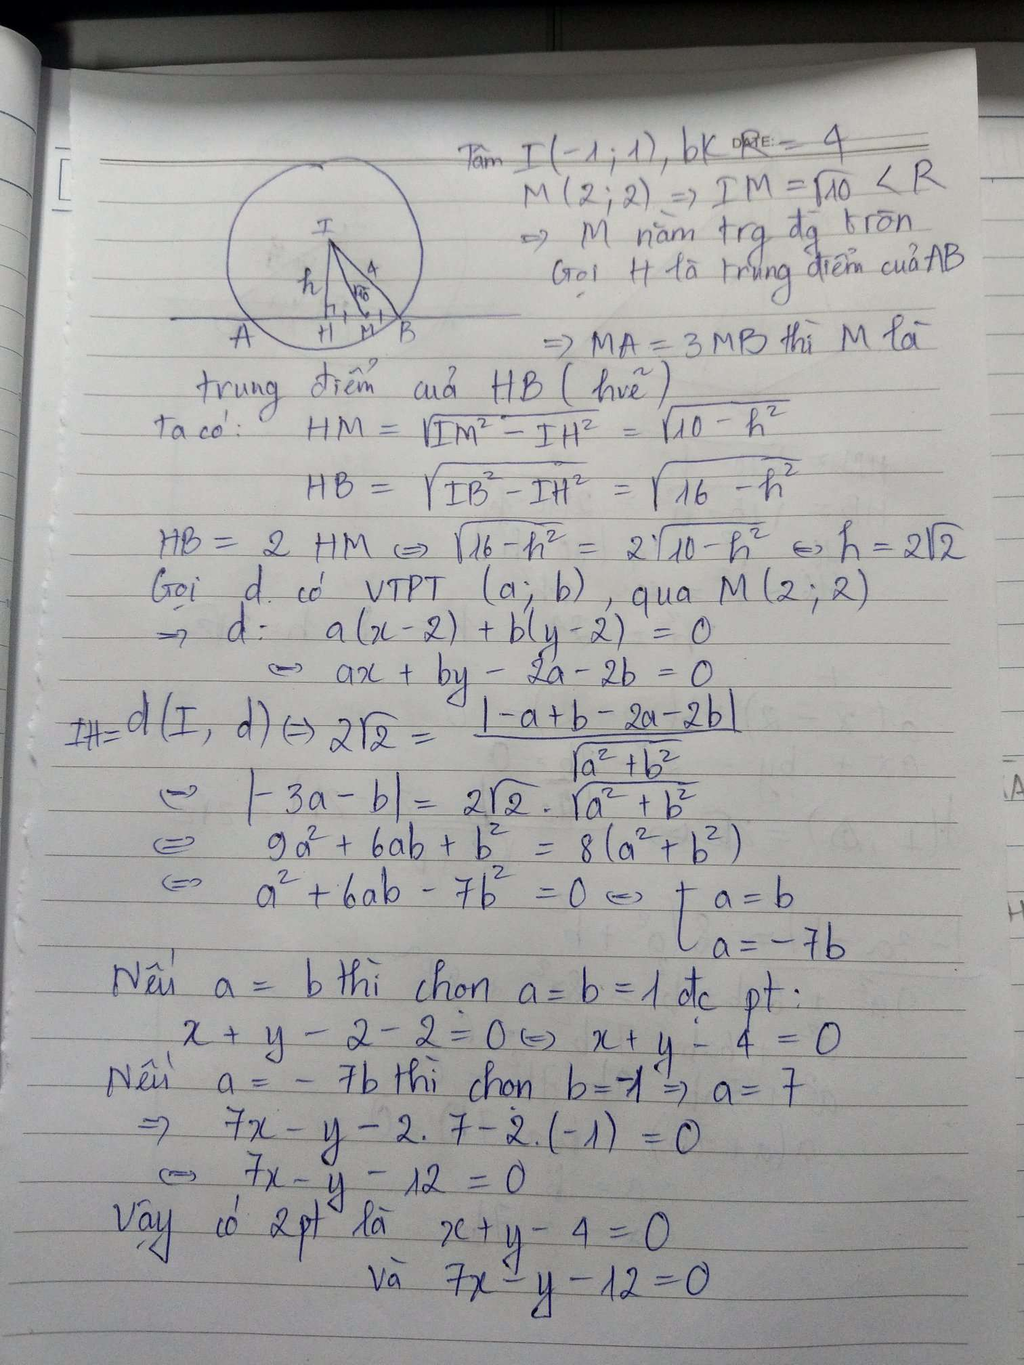 Tâm I(-1;1), bk R = 4
DATE:
M(2;2) => IM = √10 < R
=> M nằm trg đg tròn
Gọi H là trung điểm của AB
I
h
4
√10
A
H
M
B
=> MA = 3MB thì M là
trung điểm của HB (hvẽ)
Ta có: HM = √(IM² - IH²) = √(10 - h²)
HB = √(IB² - IH²) = √(16 - h²)
HB = 2 HM <=> √(16 - h²) = 2√(10 - h²) <=> h = 2√2
Gọi d có VTPT (a; b), qua M(2; 2)
=> d: a(x-2) + b(y-2) = 0
<=> ax + by - 2a - 2b = 0
IH = d(I, d) <=> 2√2 = |-a+b-2a-2b| / √(a² + b²)
<=> |-3a - b| = 2√2 . √(a² + b²)
<=> 9a² + 6ab + b² = 8(a² + b²)
<=> a² + 6ab - 7b² = 0 <=> [ a = b
a = -7b
Nếu a = b thì chọn a = b = 1 đc pt:
x + y - 2 - 2 = 0 <=> x + y - 4 = 0
Nếu a = - 7b thì chọn b = -1 => a = 7
=> 7x - y - 2.7 - 2.(-1) = 0
<=> 7x - y - 12 = 0
Vậy có 2pt là x + y - 4 = 0
và 7x - y - 12 = 0